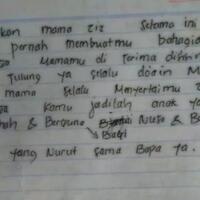 kan mama ziz Selama ini
pernah membuatmu bahagia
Mamamu di Terima disisi
Tulung ya selalu doain M
mama selalu Menyertaimu
kamu jadilah anak ya
& Berguna Nusa & B
Bagi
yang Nurut sama Bapa ya.